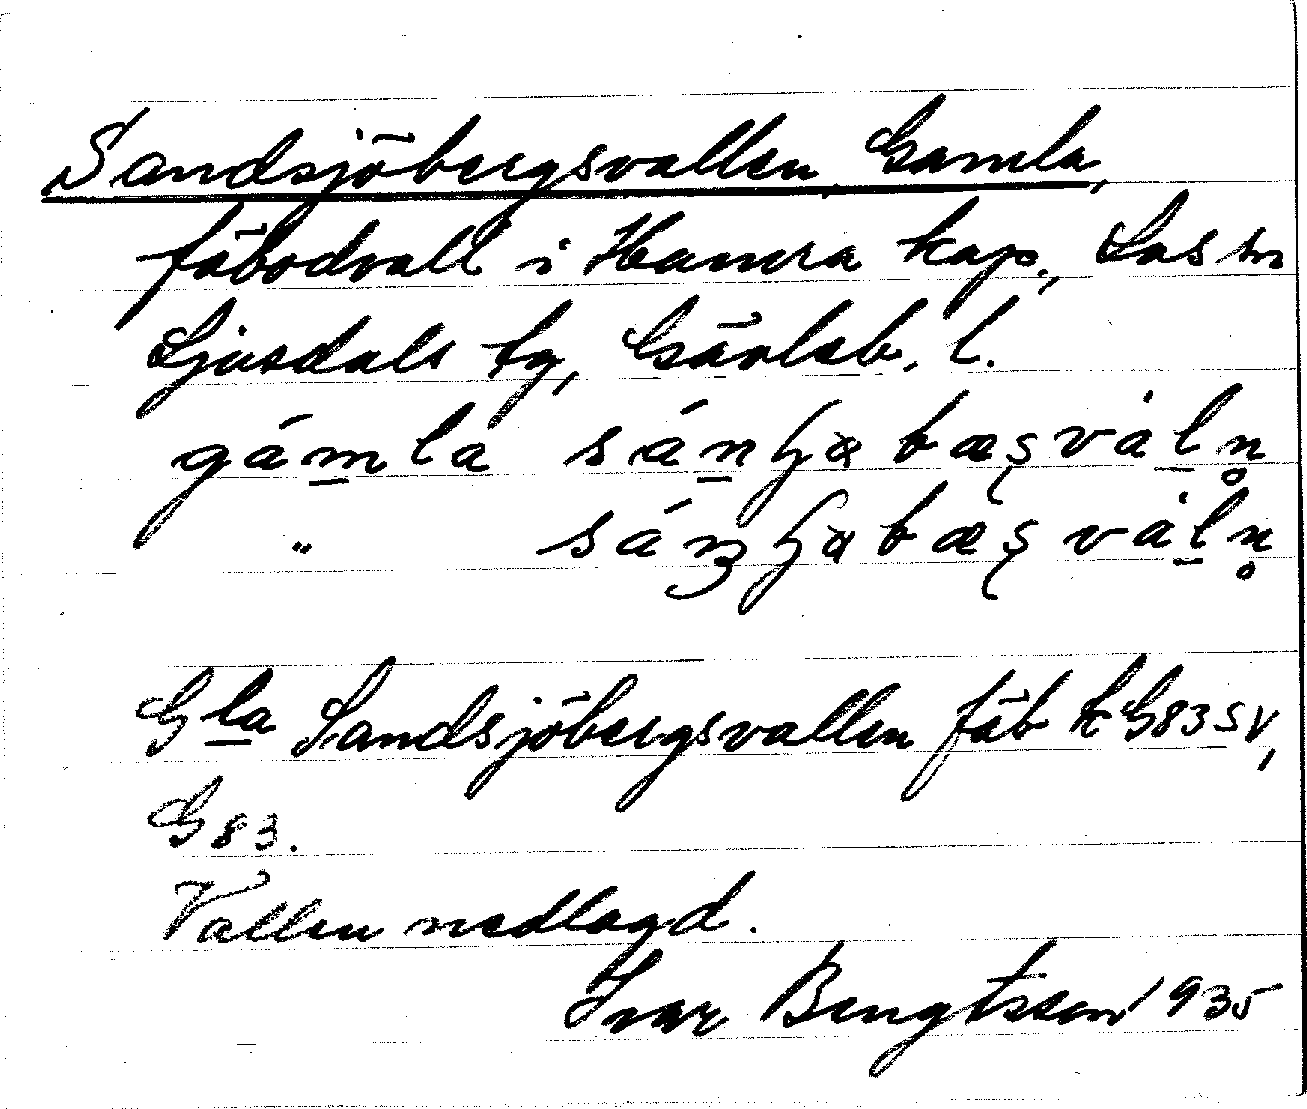 Sandsjöbergsvallen, Gamla,
fäbodvall i Hamra kap., Los sn
Ljusdals tg, Gävleb. l.
gám̲la
"
Gla Sandsjöbergsvallen fäb k G83SV,
G83.
Vallen nedlagd.
Ivar Bengtsson 1935